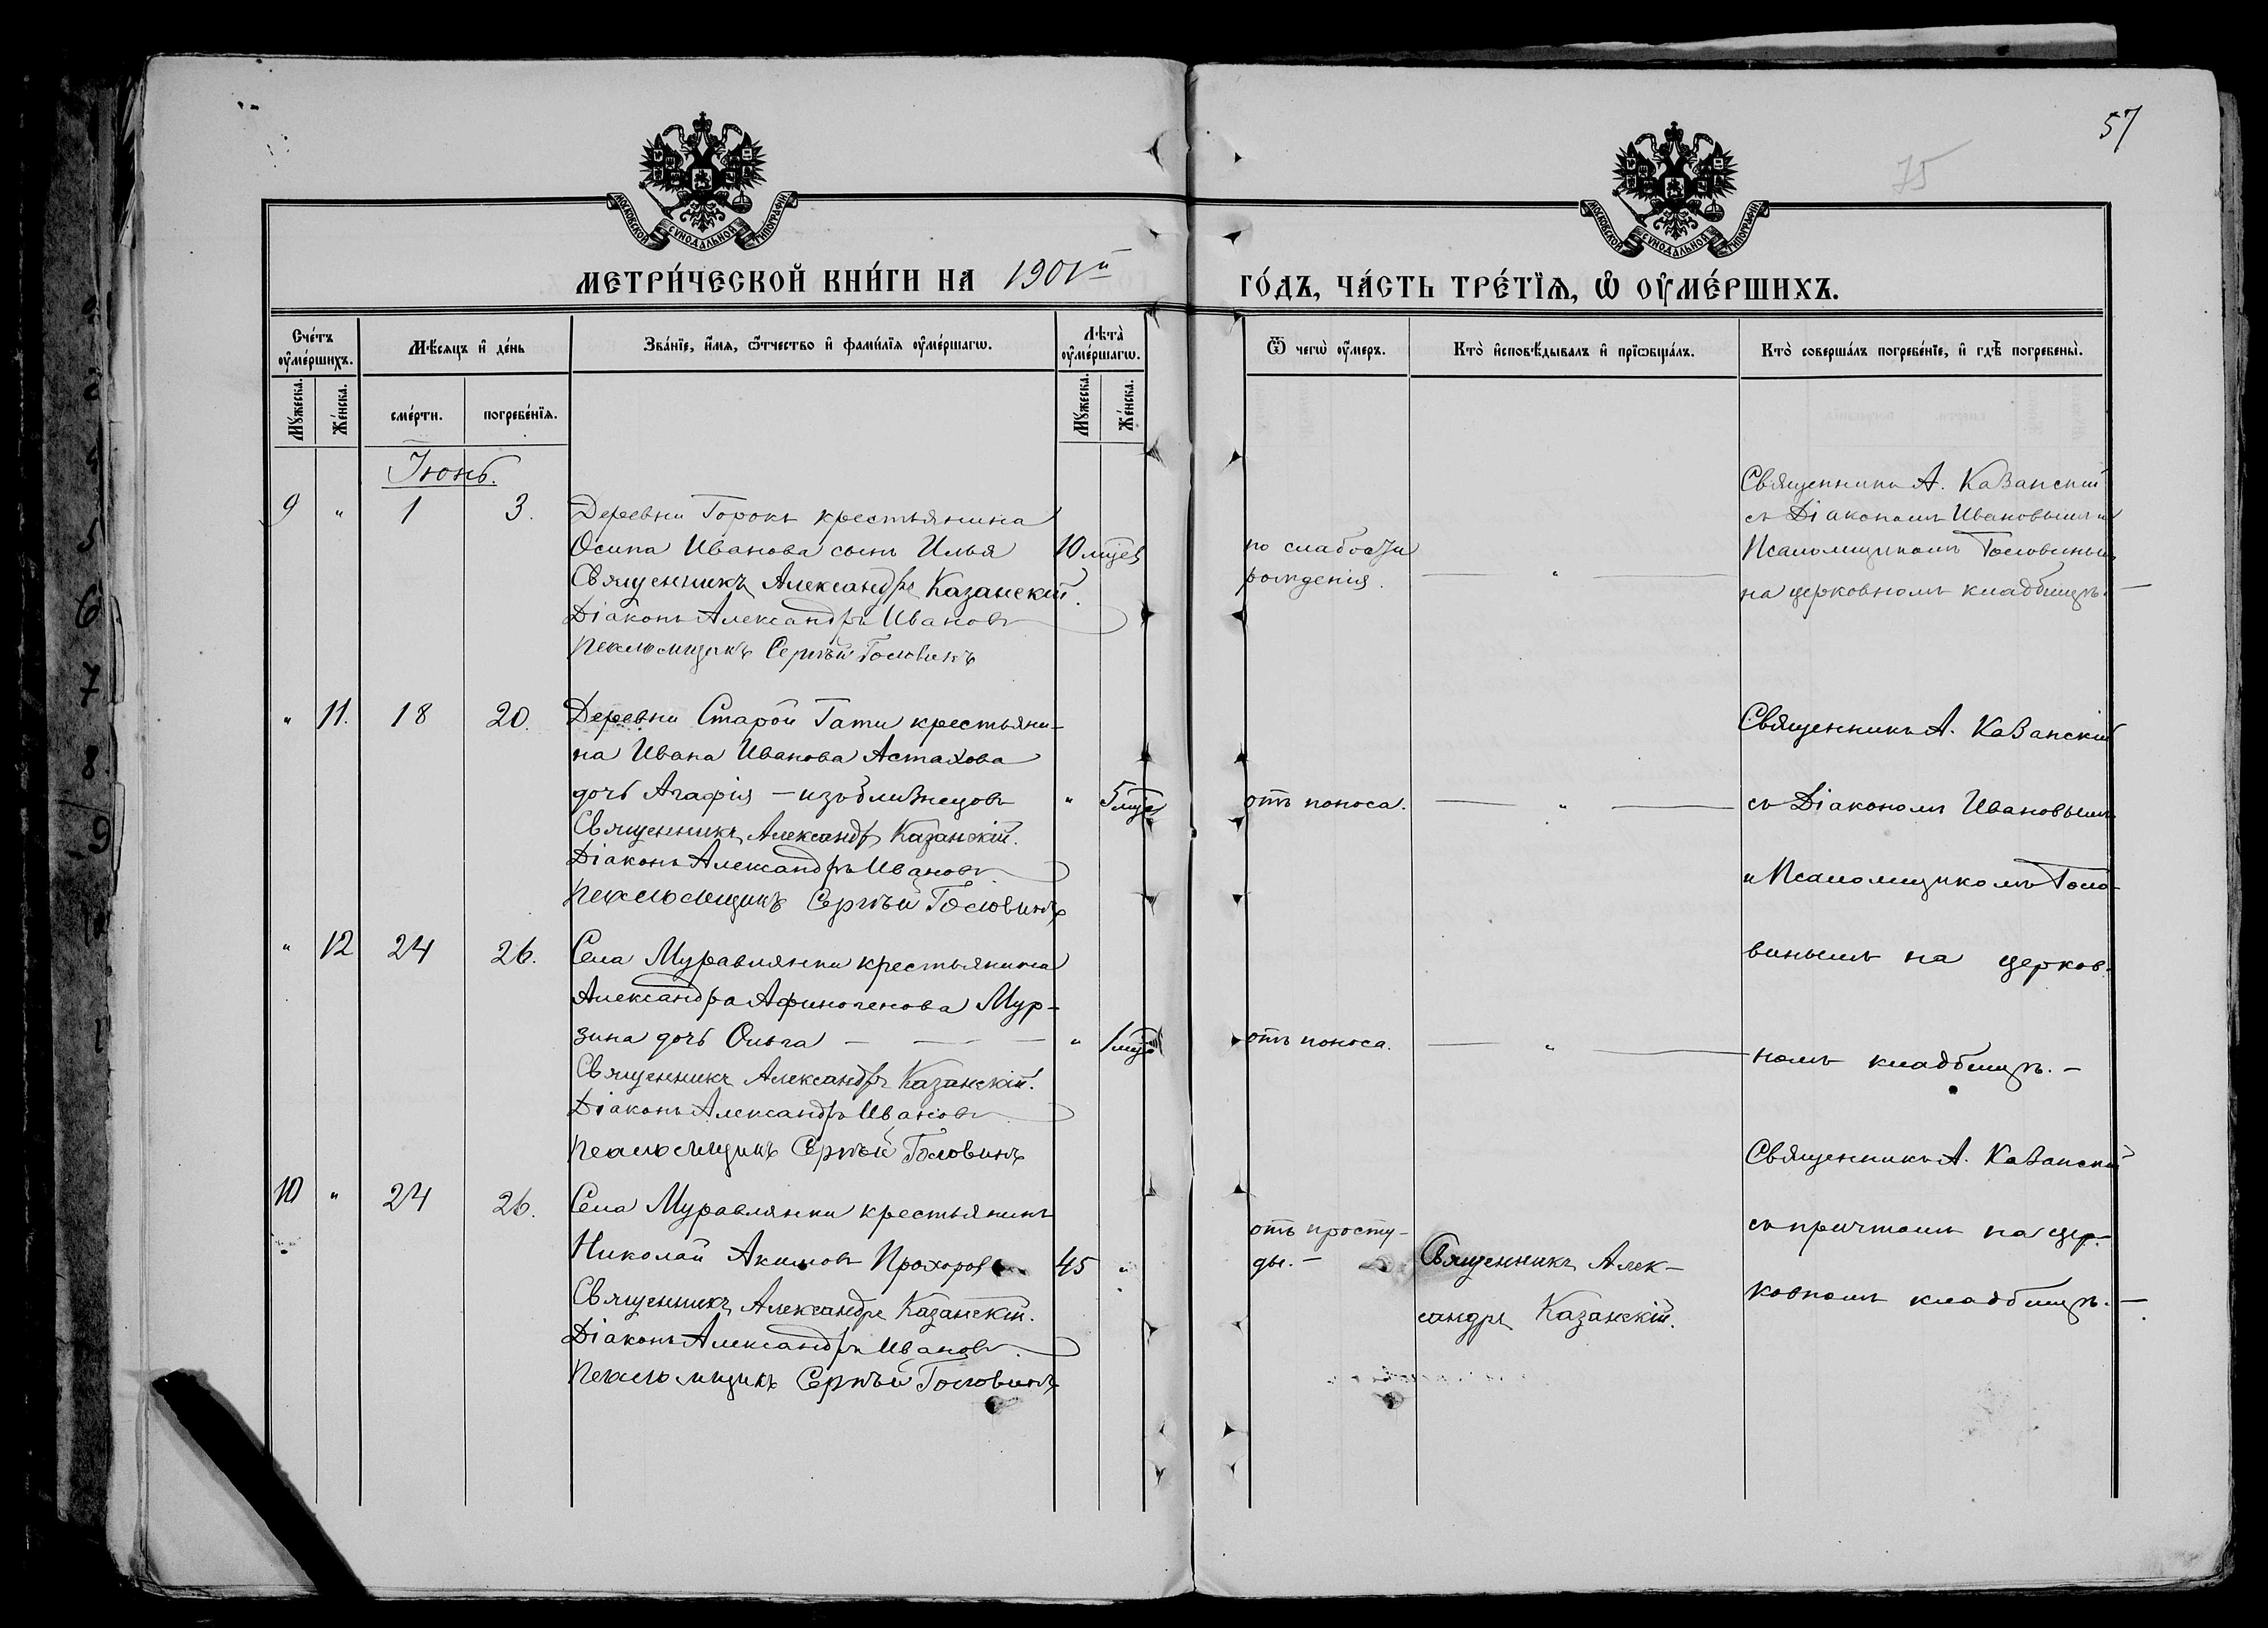 57
75
МОСКОВСКОЙ СѴНОДАЛЬНОЙ ТИПОГРАФІИ
МОСКОВСКОЙ СѴНОДАЛЬНОЙ ТИПОГРАФІИ
МЕТРИ́ЧЕСКОЙ КНИ́ГИ НА 1901й
ГО́ДЪ, ЧА́СТЬ ТРЕ́ТЇѦ, Ѡ҆ ОУ҆МЕ́РШИХЪ.
Сче́тъ оу҆ме́ршихъ.
Мѣ́сяцъ и҆ де́нь
Зва́нїе, и҆́мя, ѻ҆́тчество и҆ фами́лїя оу҆ме́ршагѡ.
Лѣта̀ оу҆ме́ршагѡ.
Ѿ чегѡ̀ оу҆́меръ.
Кто̀ и҆сповѣ́дывалъ и҆ прїѡбща́лъ.
Кто̀ соверша́лъ погребе́нїе, и҆ гдѣ̀ погребены̀.
Мꙋ́жеска.
Же́нска.
сме́рти.
погребе́нїя.
Мꙋ́жеска.
Же́нска.
Іюнь.
9 " 1 3. Деревни Горокъ крестьянина
Осипа Иванова сынъ Илья 10 мцев
Священникъ Александръ Казанскій.
Діаконъ Александръ Ивановъ
Псаломщикъ Сергѣй Головинъ
по слабости
рожденія. — " —
Священникъ А. Казанскій
съ Діакономъ Ивановымъ и
Псаломщикомъ Головинымъ
на церковномъ кладбищѣ. —
" 11. 18 20. Деревни Старой Гати крестьяни-
на Ивана Иванова Астахова
дочь Агафія — изъ близнецовъ " 5 мце
Священникъ Александръ Казанскій.
Діаконъ Александръ Ивановъ
Псаломщикъ Сергѣй Головинъ
отъ поноса. — " —
Священникъ А. Казанскій
съ Діакономъ Ивановымъ
и Псаломщикомъ Голо-
винымъ на церков-
номъ кладбищѣ. —
" 12 24 26. Села Муравлянки крестьянина
Александра Афиногенова Мур-
зина дочь Ольга — — — " 1 мца
Священникъ Александръ Казанскій.
Діаконъ Александръ Ивановъ
Псаломщикъ Сергѣй Головинъ
отъ поноса. — " —
10 " 24 26. Села Муравлянки крестьянинъ
Николай Акимовъ Прохоровъ 45 "
Священникъ Александръ Казанскій.
Діаконъ Александръ Ивановъ
Псаломщикъ Сергѣй Головинъ
отъ просту-
ды. —
Священникъ Алек-
сандръ Казанскій.
Священникъ А. Казанскій
съ причтомъ на цер-
ковномъ кладбищѣ. —